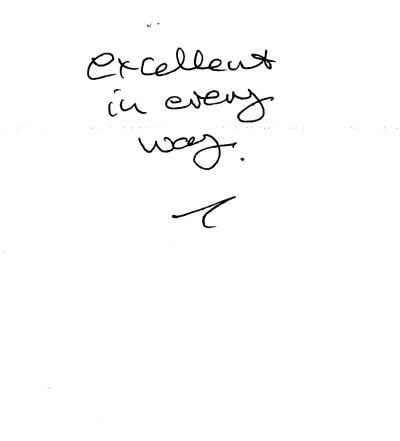 excellent
in every
way.